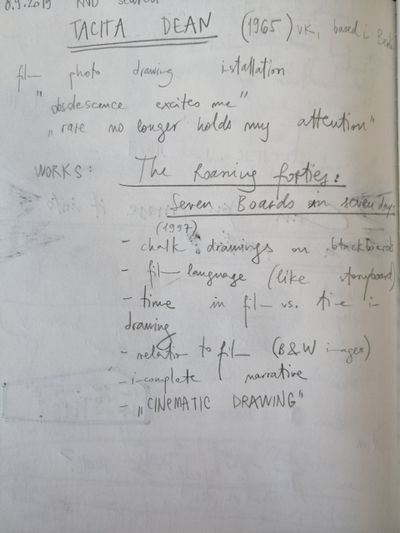 6.9.2019 RND
TACITA DEAN (1965) UK, based i
film photo drawing installation
"obsolescence excites me"
„rare no longer holds my attention"
WORKS: The Roaming forties:
Seven Boards in seven days
(1997)
- chalk drawings on blackboards
- film language (like storyboard)
- time in film vs. time in
drawing
- relation to film (B&W images)
- incomplete narrative
- „CINEMATIC DRAWING"